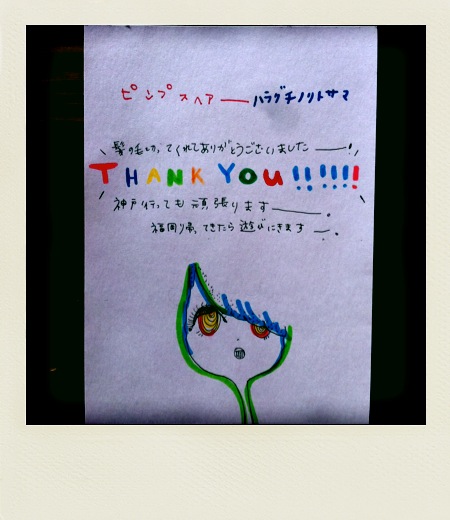 ピンプスヘアー ハラグチノリトサマ
髪の毛切ってくれてありがとうございました ー!
THANK YOU!!!!!!
神戸行っても頑張りますー。
福岡帰ってきたら遊びにきますー。